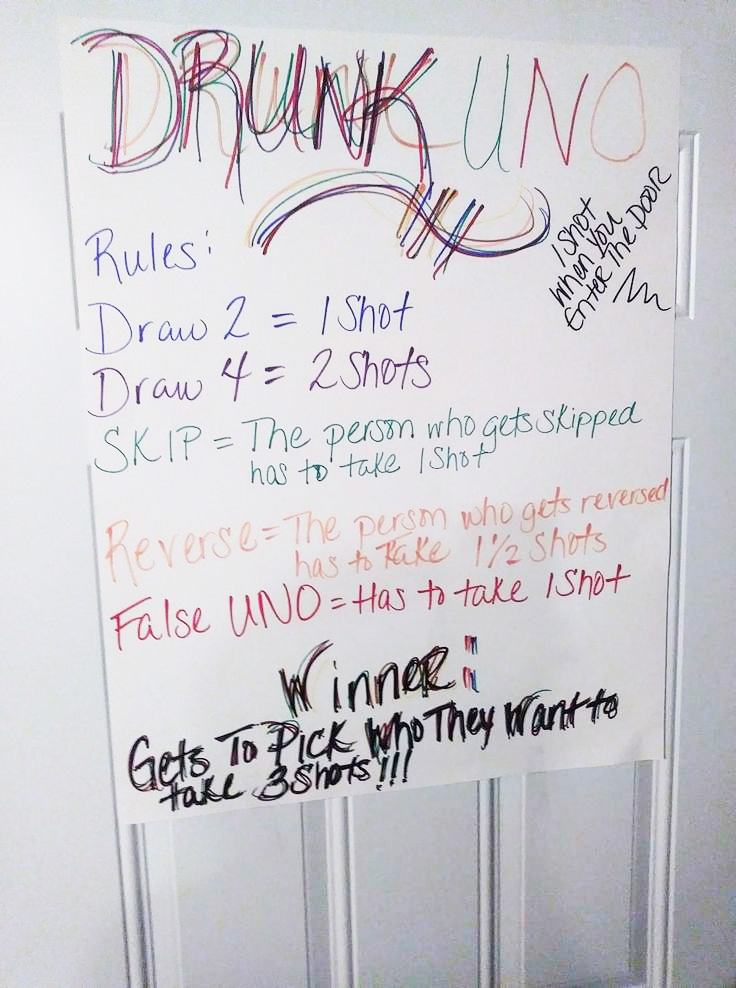 DRUNK UNO
1 Shot
When You
Enter The DOOR
Rules:
Draw 2 = 1 Shot
Draw 4 = 2 Shots
SKIP = The person who gets skipped
has to take 1 Shot
Reverse = The person who gets reversed
has to take 1 1/2 Shots
False UNO = Has to take 1 Shot
Winner:
Gets To Pick Who They Want to
take 3 Shots!!!